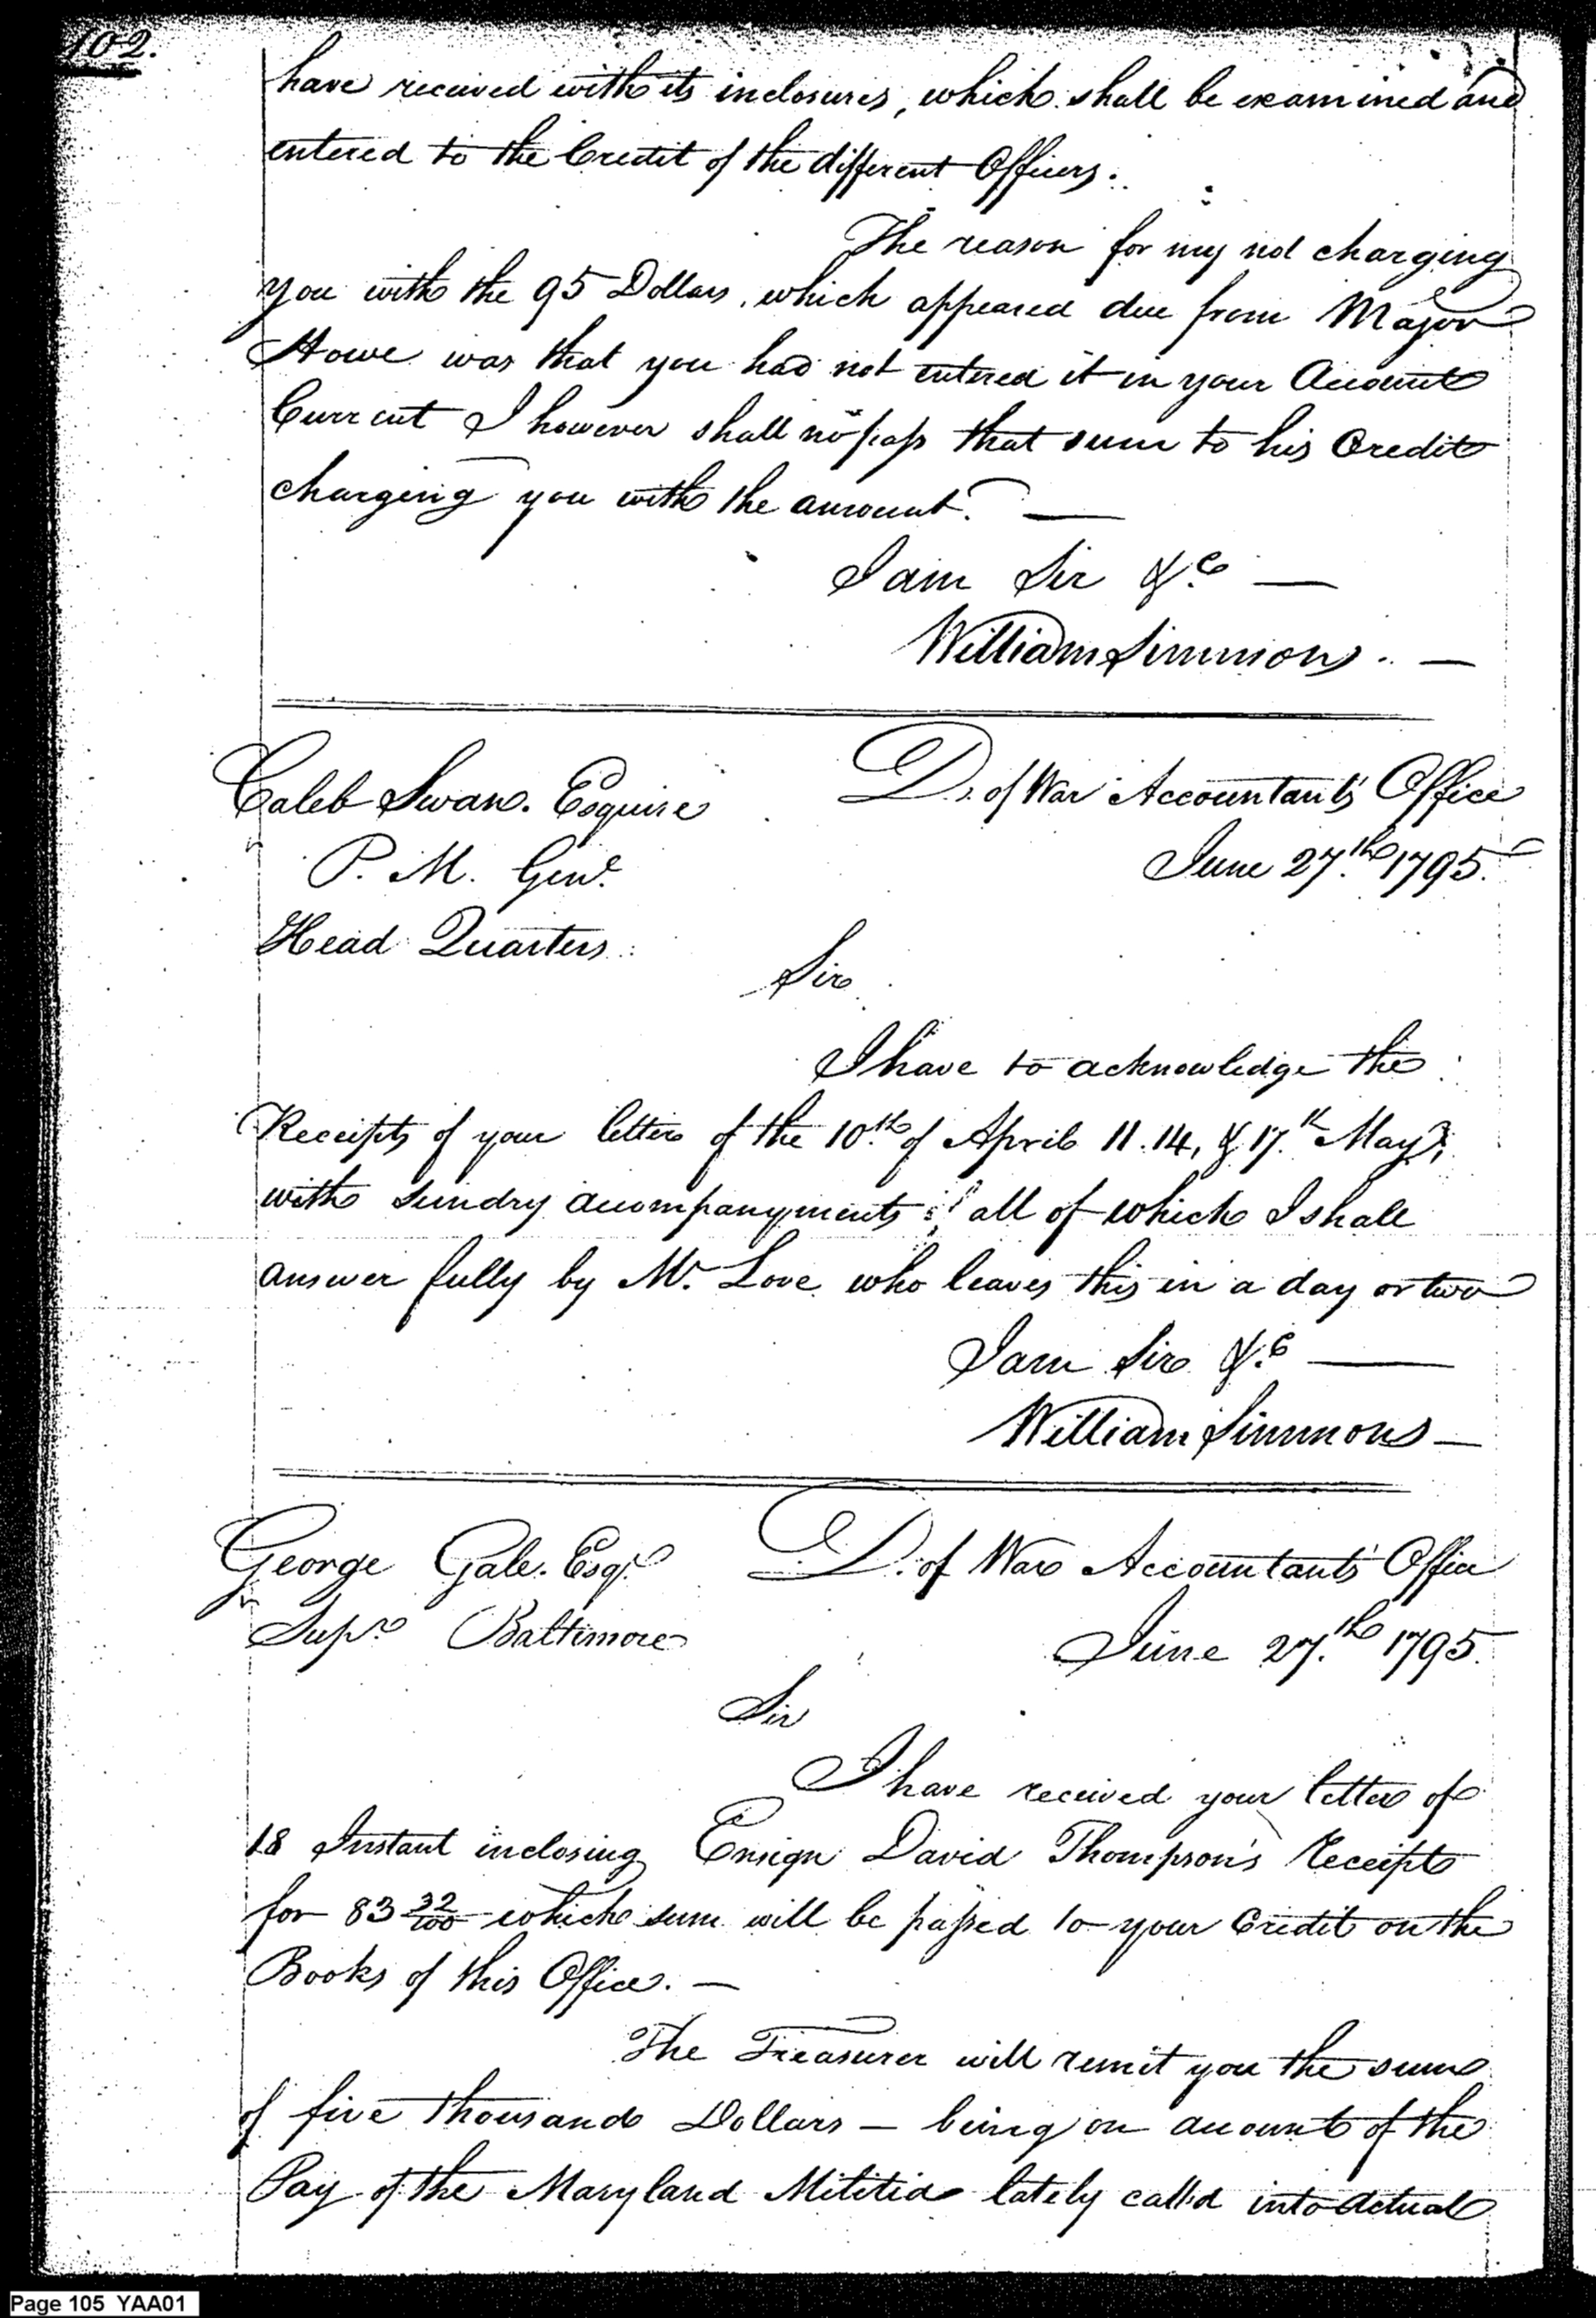 102.
have received with its inclosures, which shall be examined and
entered to the Credit of the different Officers.
The reason for my not charging
you with the 95 Dollars, which appeared due from Major
Howe was that you had not entered it in your Account
Current I however shall now pass that sum to his Credit
charging you with the amount. —
I am Sir &c —
William Simmons. —
Caleb Swan. Esquire
P. M. Genl.
Head Quarters
D. of War Accountant's Office
June 27.th 1795.
Sir
I have to acknowledge the
Receipts of your letters of the 10.th of April 11. 14, & 17.th May,
with sundry acompanyments; all of which I shall
answer fully by Mr. Love who leaves this in a day or two
I am Sir &c —
William Simmons —
George Gale. Esqr.
Supr. Baltimore
D. of War Accountant's Office
June 27.th 1795.
Sir
I have received your letter of
18 Instant inclosing Ensign David Thompson's Receipts
for 83 32/100 which sum will be passed to your Credit on the
Books of this Office. —
The Treasurer will remit you the sum
of five thousand Dollars — being on account of the
Pay of the Maryland Militia lately call'd into actual
Page 105 YAA01